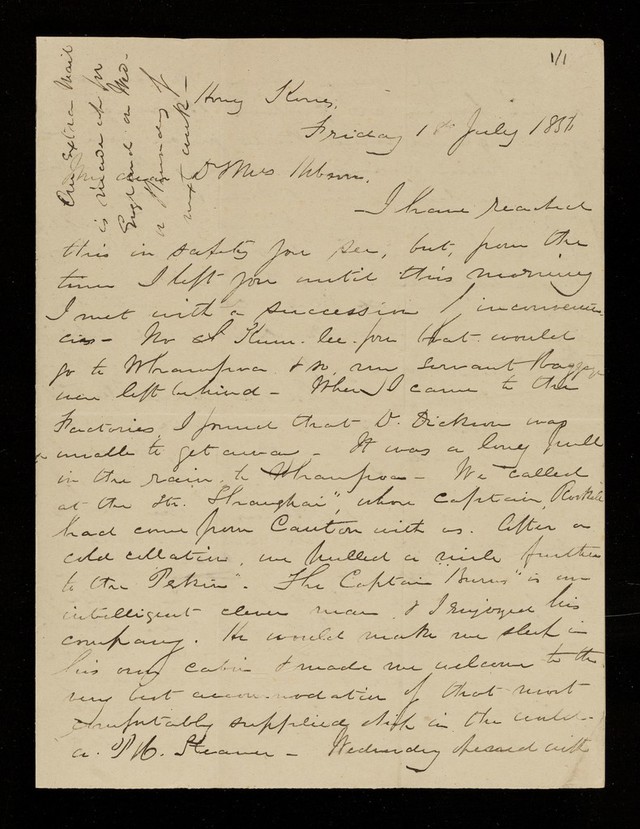 1/1
An Extra Mail
is made up for
England on
or Thursday of
next week -
Hong Kong,
Friday 1st July 185
My dear Dr Mrs Hobson,
- I have reached
this in safety you see, but, from the
time I left you until this morning
I met with a succession of inconvenien-
cies - No boat would
go to Whampoa & so my servant & baggage
were left behind - When I came to the
Factories, I found that Dr. Dickson was
unable to get away - It was a long pull
in the rain to Whampoa - We called
at the Str. "Shanghai", whose Captain,
had come from Canton with us. After a
cold collation, we pulled a mile further
to the "Pekin". The Captain "Burns" is an
intelligent clever man & I enjoyed his
company. He would make me sleep in
his own cabin & made me welcome to the
very best accommodation of that most
comfortably supplied ship in the world -
a P. & O. Steamer - Wednesday passed with